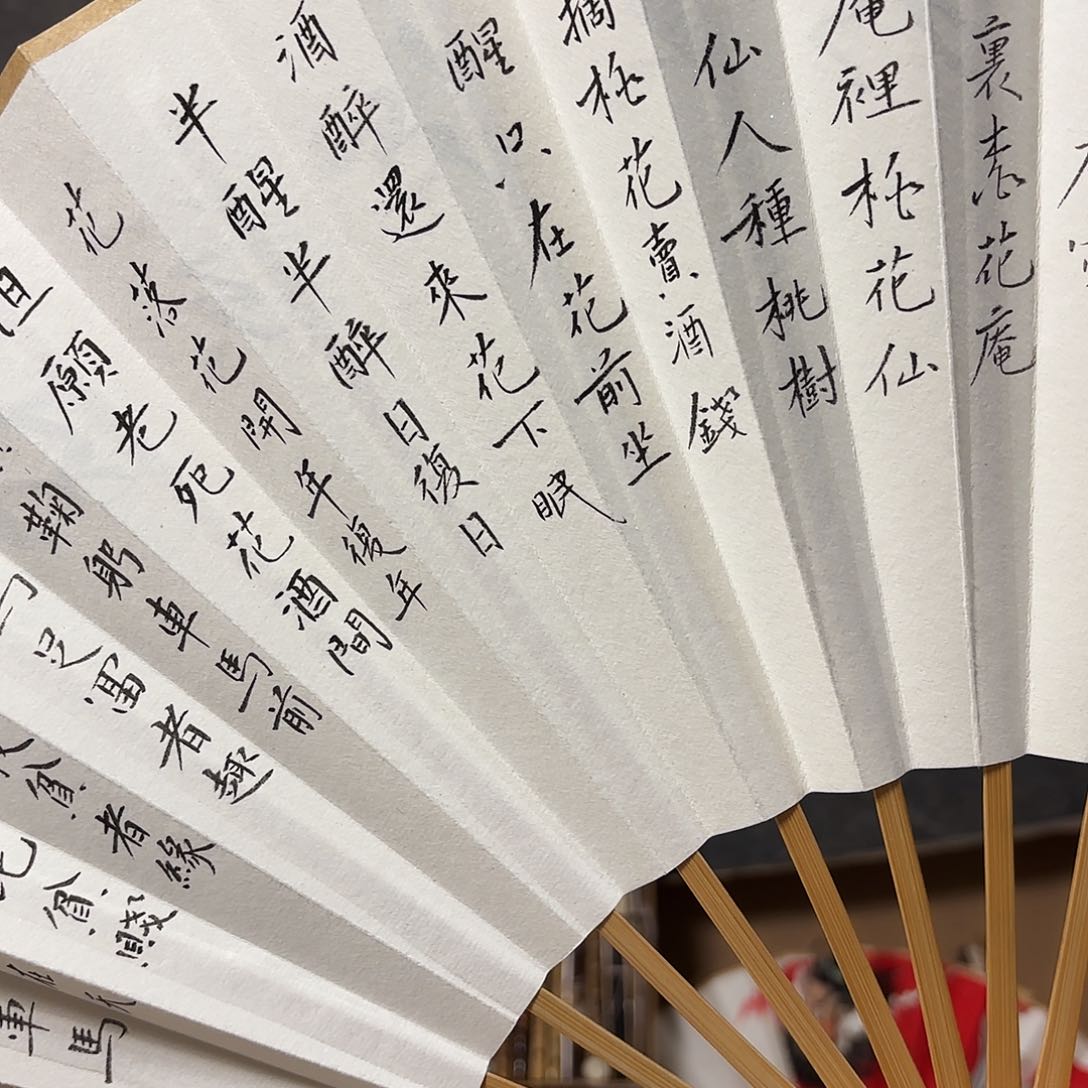 裏桃花庵
庵裡桃花仙
仙人種桃樹
摘桃花賣酒錢
醒只在花前坐
酒醉還來花下眠
半醒半醉日復日
花落花開年復年
願老死花酒間
鞠躬車馬前
足富者趣
貧者緣
貧賤
車馬